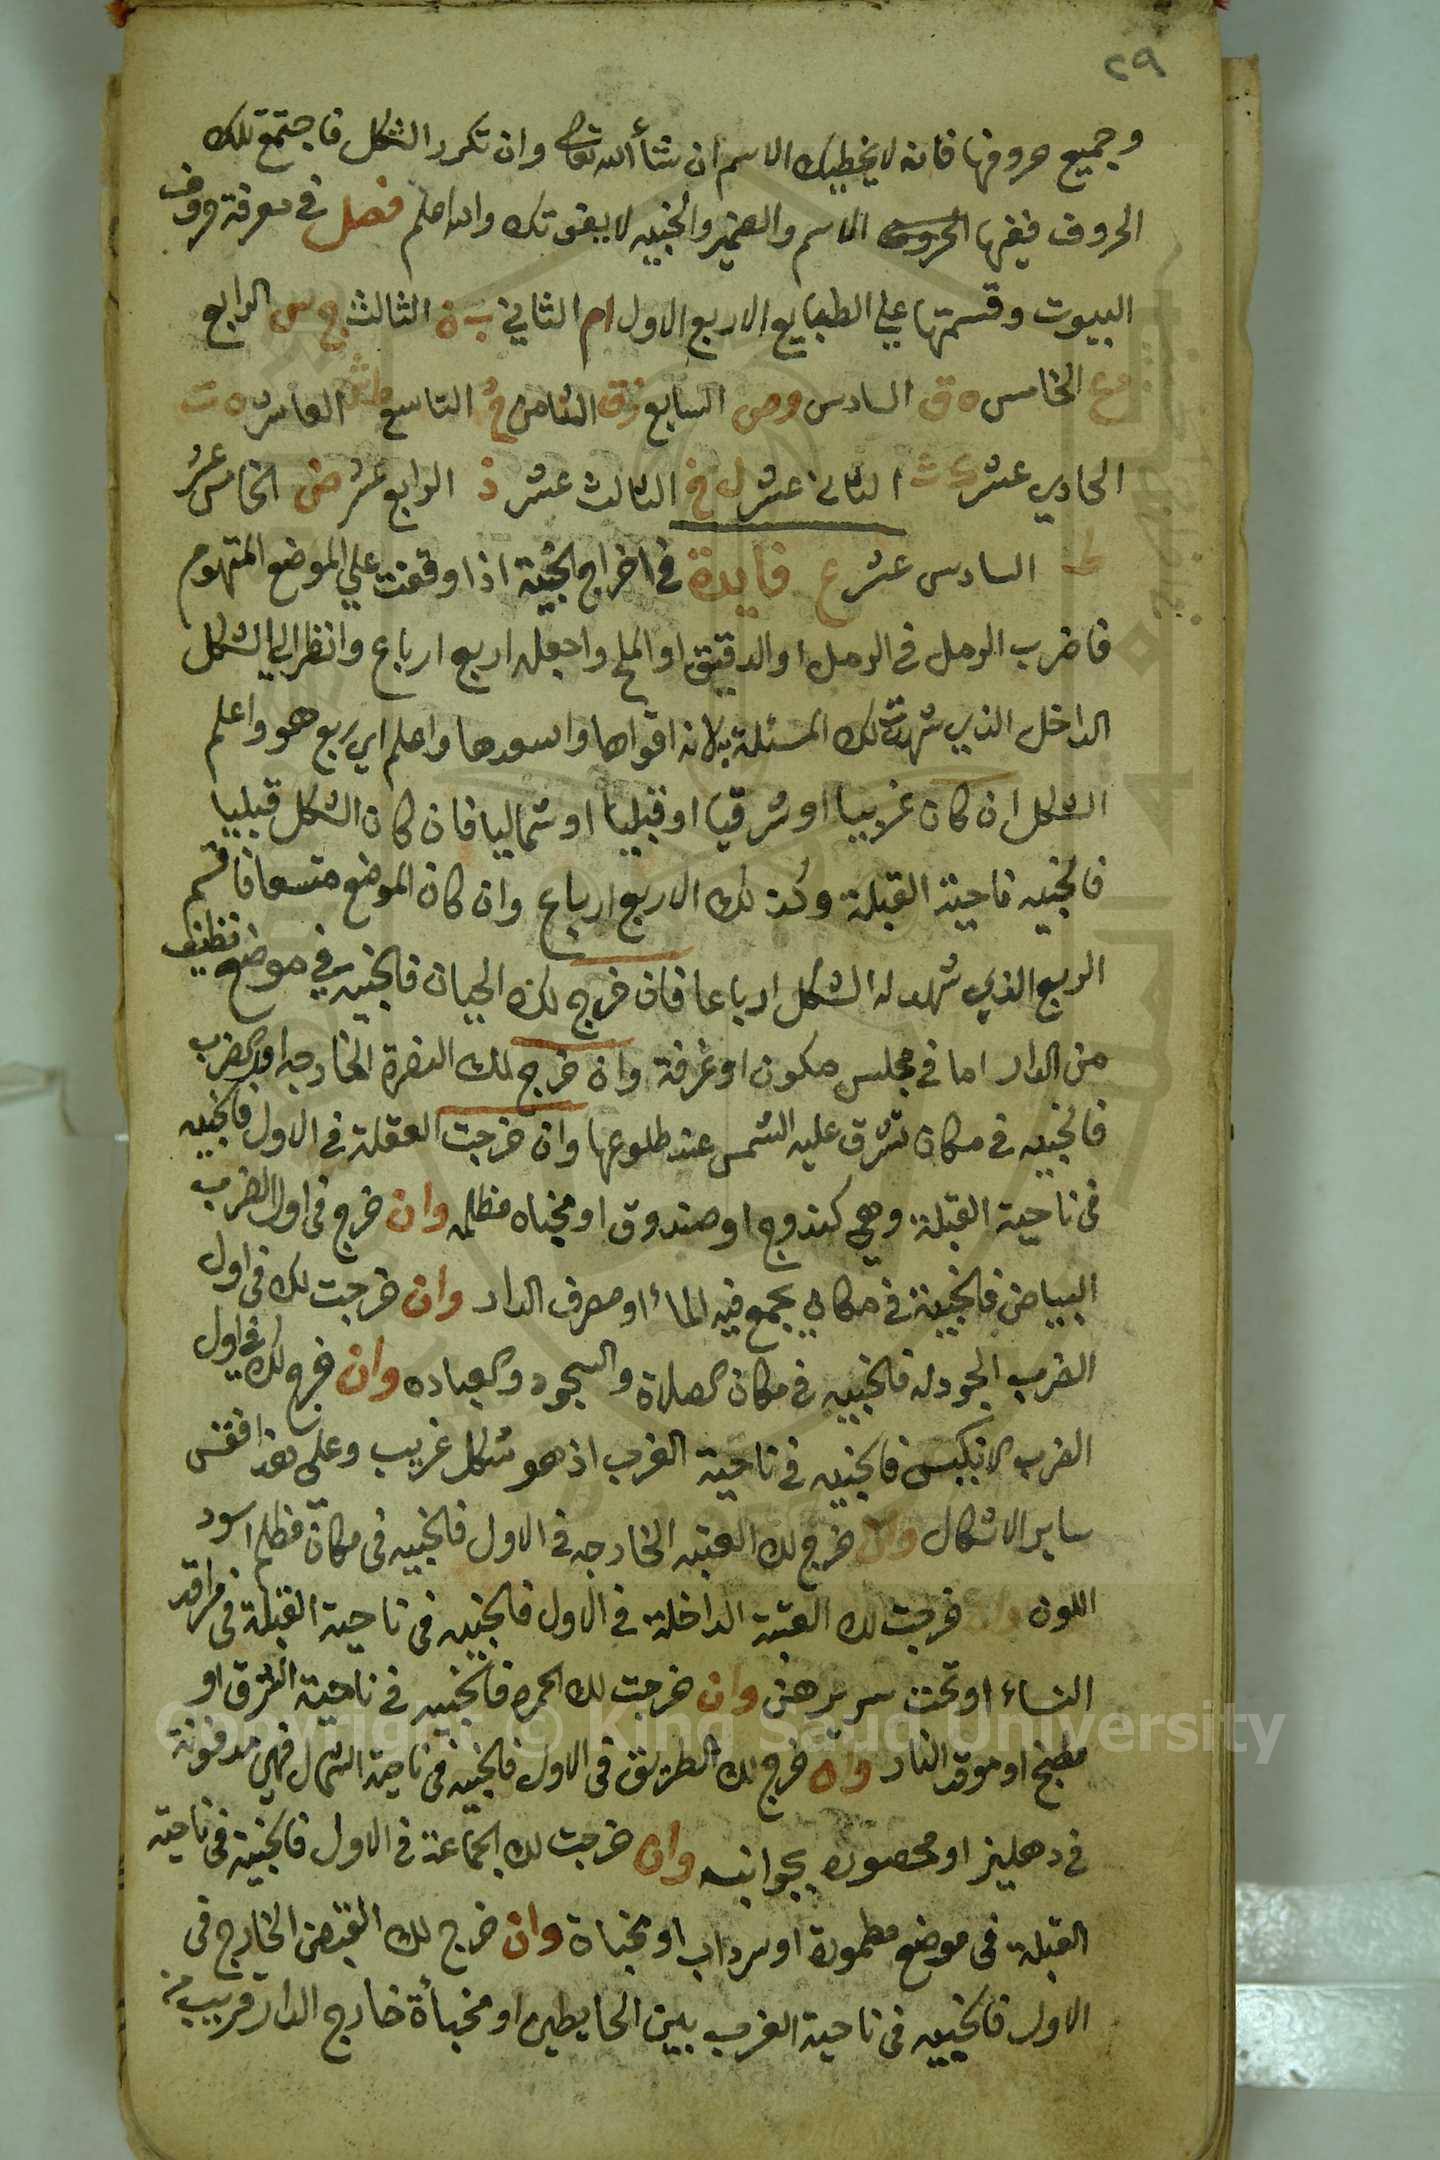 ٢٩
وجميع حروفها فانه لا يخطيك الاسم ان شاء الله تعالى وان تكرر الشكل فاجتمع تلك
الحروف ففيها الحروف الاسم والضمير والخبيه لا يفوتك والله اعلم فصل في معرفة حروف
البيوت وقسمتها علي الطبايع الاربع الاول ام الثاني ب ن الثالث ج س الرابع
الخامس ه ق السادس وص السابع الثامن التاسع العاشر
الحادي عشر ك ث الثاني عشر ل خ الثالث عشر ذ الرابع عشر ض الخامس عشر
السادس عشر غ فايدة في اخراج الخبية اذا وقفت علي الموضع المتهوم
فاضرب الرمل في الرمل او الدقيق او الملح واجعله اربع ارباع وانظر الي الشكل
الداخل الذي شهدت لك المسئلة بلانه اقواها واسعدها واعلم اي ربع هو واعلم
الشكل ان كان غربيا او شرقيا او قبليا او شماليا فان كان الشكل قبليا
فالخبيه ناحية القبلة وكذلك الاربع ارباع وان كان الموضع متسعا فاقسم
الربع الذي شهد له الشكل ارباعا فان خرج لك الحيان فالخبيه في موضع نظيف
من الدار اما في مجلس مكون او غرفة وان خرج لك النصرة الخارجه اول الضرب
فالخبيه في مكان تشرق عليه الشمس عند طلوعها وان خرجت العقلة في الاول فالخبيه
في ناحية القبلة وهي كندوج او صندوق او مخباه مظلمه وان خرج في اول الضرب
البياض فالخبية في مكان يجمع فيه الماء او مصرف الدار وان خرجت لك في اول
الضرب الجودله فالخبيه في مكان الصلاة والسجود والعباده وان خرج لك في اول
الضرب الانكيس فالخبيه في ناحية الغرب اذ هو شكل غريب وعلى هذا فقس
ساير الاشكال وان خرج لك العتبه الخارجه في الاول فالخبيه في مكان مظلم اسود
اللون وان خرجت لك العتبة الداخلة في الاول فالخبيه في ناحية القبلة في مراقد
النساء او تحت سريرهن وان خرجت لك الحمره فالخبيه في ناحية الشرق او
مطبخ او موقد النار وان خرج لك الطريق في الاول فالخبيه في ناحية الشمال فهي مدفونة
في دهليز او محصوره بجوانبه وان خرجت لك الجماعة في الاول فالخبية في ناحية
القبلة في موضع مطمورة او سرداب او مخباة وان خرج لك القبض الخارج في
الاول فالخبيه في ناحية الغرب بين الحايطين او مخبأة خارج الدار قريب من
Copyright © King Saud University